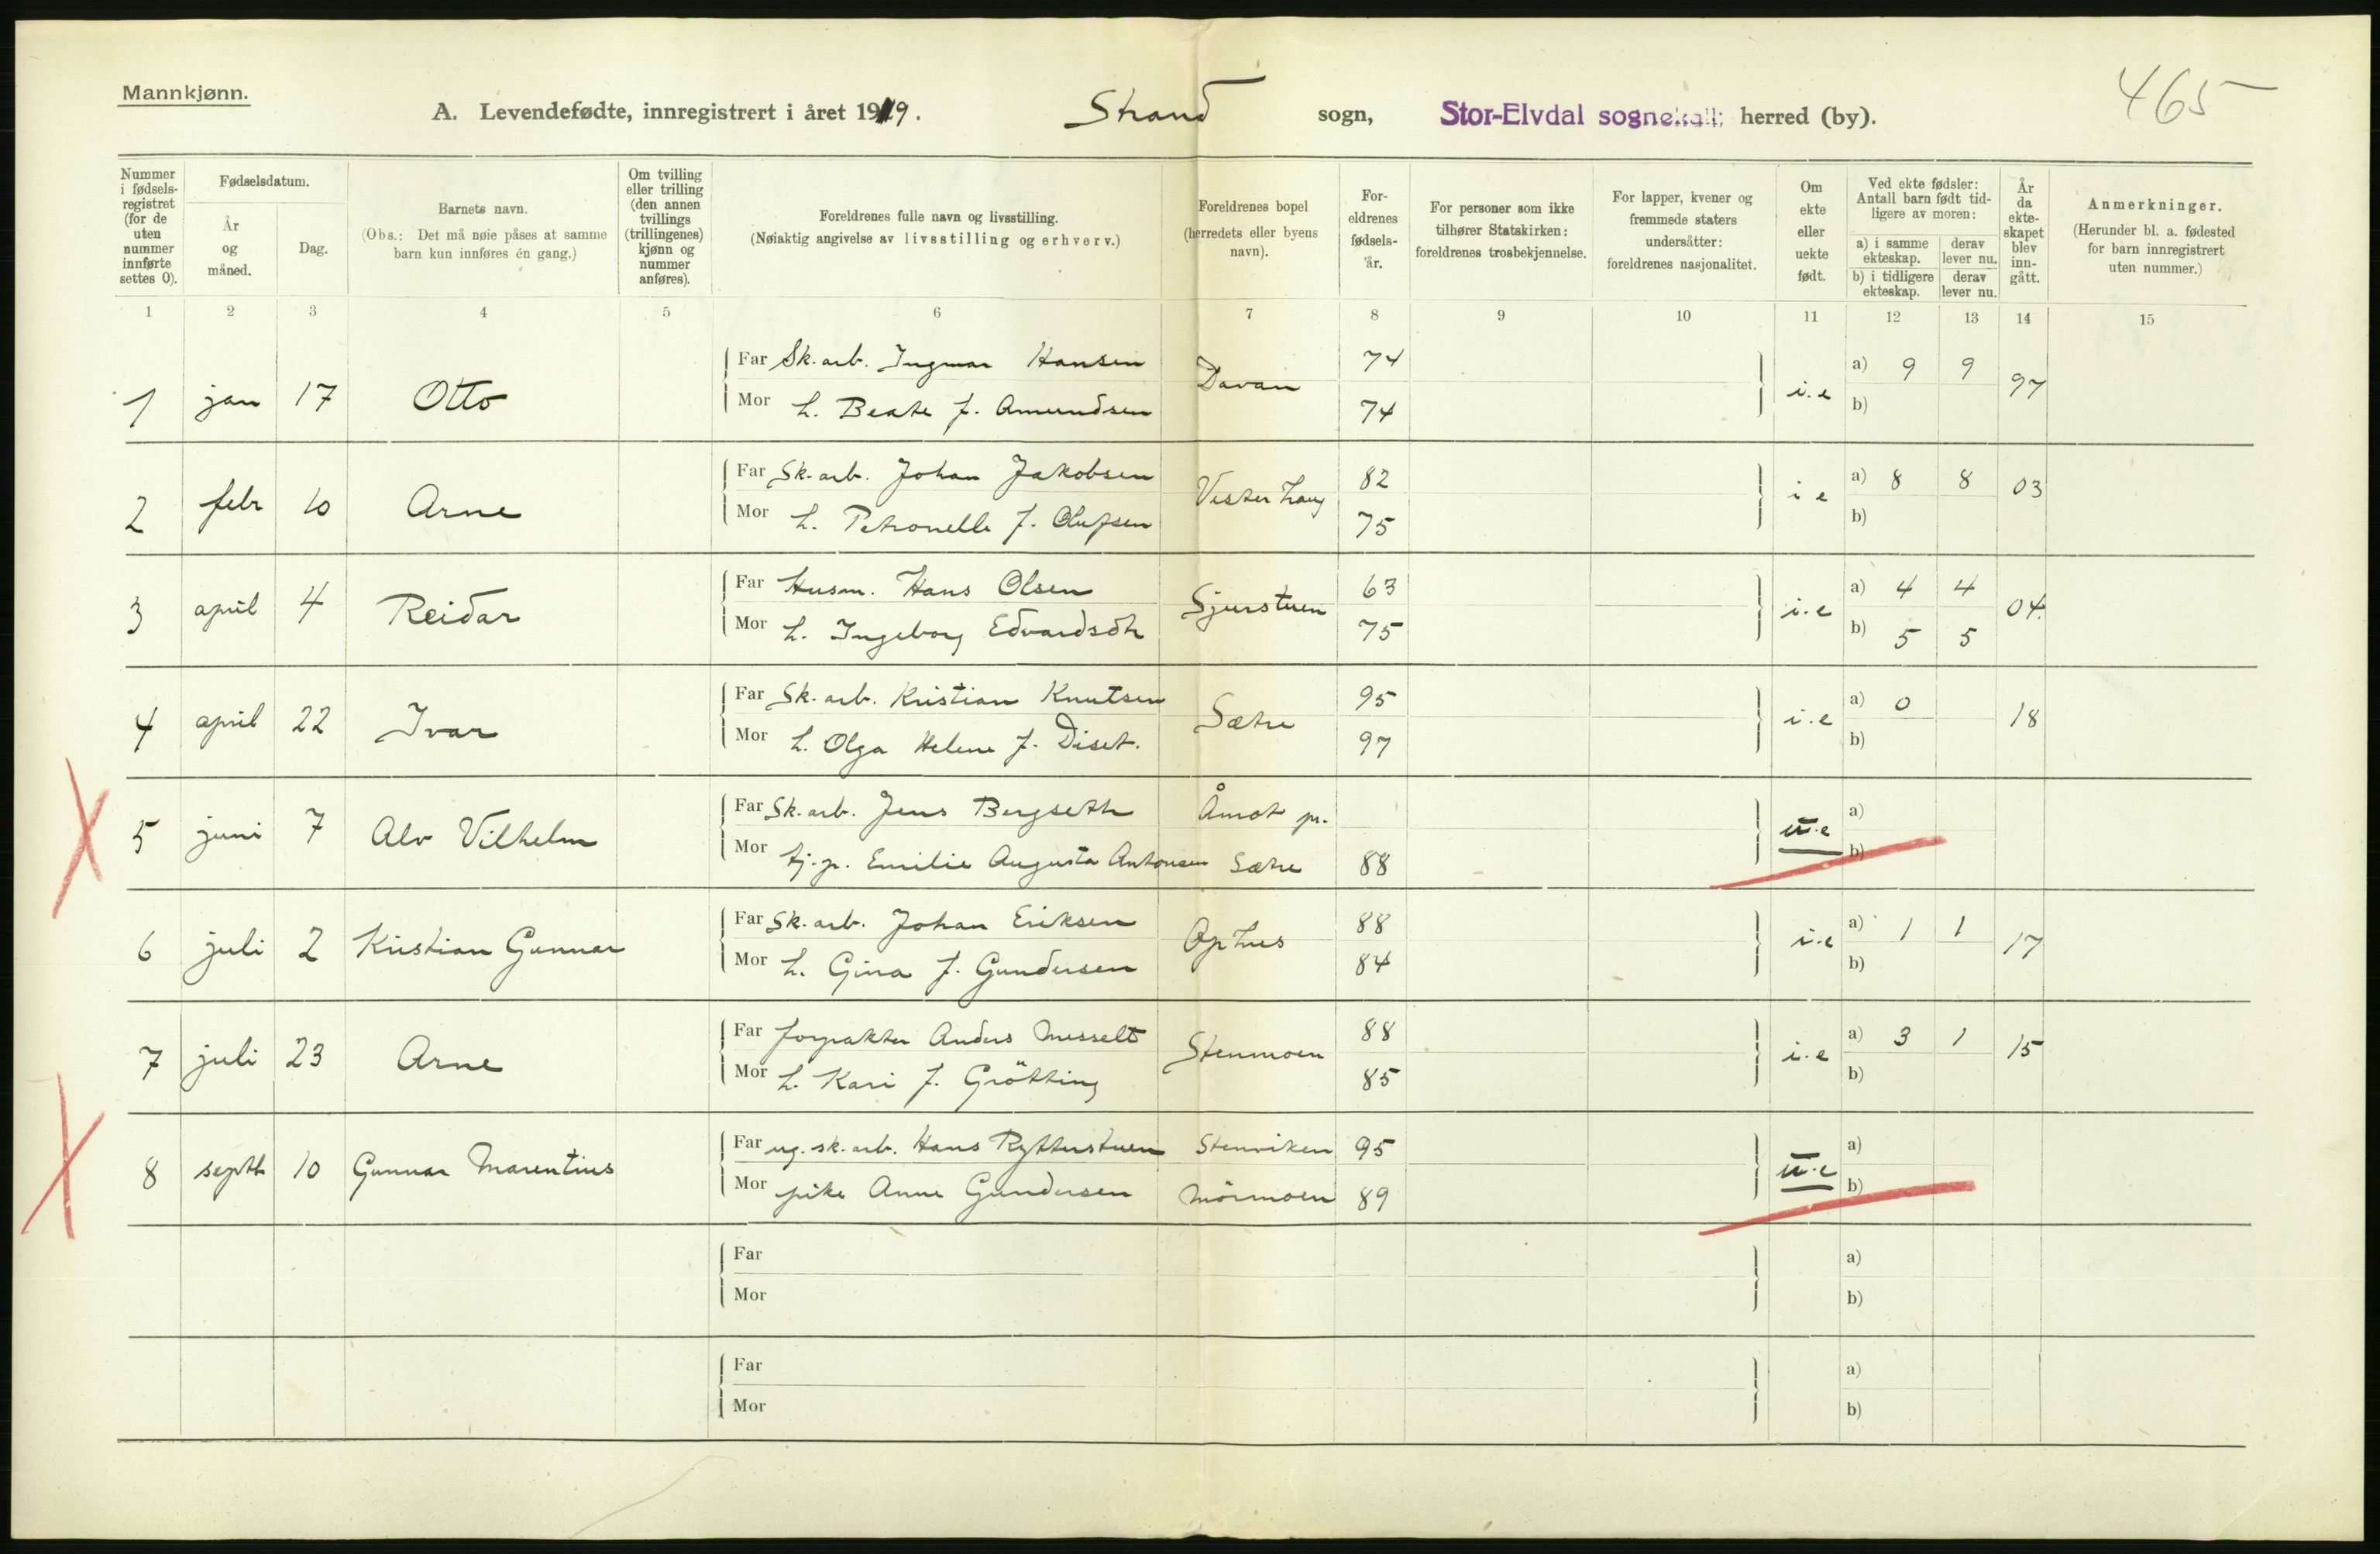 Mannkjønn.
A. Levendefødte, innregistrert i året 1919. Strand sogn, Stor-Elvdal sognekall; herred (by). 465
Nummer i fødsels-registret (for de uten nummer innførte settes 0).
Fødselsdatum.
År og måned.
Dag.
Barnets navn.
(Obs.: Det må nøie påses at samme barn kun innføres én gang.)
Om tvilling eller trilling (den annen tvillings (trillingenes) kjønn og nummer anføres).
Foreldrenes fulle navn og livsstilling.
(Nøiaktig angivelse av livsstilling og erhverv.)
Foreldrenes bopel (herredets eller byens navn).
For-eldrenes fødsels-år.
For personer som ikke tilhører Statskirken: foreldrenes trosbekjennelse.
For lapper, kvener og fremmede staters undersåtter: foreldrenes nasjonalitet.
Om ekte eller uekte født.
Ved ekte fødsler: Antall barn født tid-ligere av moren:
a) i samme ekteskap.
derav lever nu.
b) i tidligere ekteskap.
derav lever nu.
År da ekte-skapet blev inn-gått.
Anmerkninger.
(Herunder bl. a. fødested for barn innregistrert uten nummer.)
1 2 3 4 5 6 7 8 9 10 11 12 13 14 15
1 jan 17 Otto Far Sk. arb. Ingmar Hansen Davan 74 i.e a) 9 9 97
Mor h. Beate f. Amundsen 74 b)
2 febr 10 Arne Far Sk. arb. Johan Jakobsen Vesterhaug 82 i e a) 8 8 03
Mor h. Petronelle f. Olufsen 75 b)
3 april 4 Reidar Far Husm. Hans Olsen Sjurstuen 63 i.e a) 4 4 04.
Mor h. Ingeborg Edvardsdtr 75 b) 5 5
4 april 22 Ivar Far Sk. arb. Kristian Knutsen Sætre 95 i.e a) 0 18
Mor h. Olga Helene f. Diset. 97 b)
5 juni 7 Alv Vilhelm Far Sk. arb. Jens Bergseth Åmot pr. u.e a)
Mor tj. p. Emilie Augusta Antonsen Sætre 88 b)
6 juli 2 Kristian Gunnar Far Sk. arb. Johan Eriksen Ophus 88 i.e a) 1 1 17
Mor h. Gina f. Gundersen 84 b)
7 juli 23 Arne Far forpakter Anders Messelt Stenmoen 88 i.e a) 3 1 15
Mor h. Kari f. Grötting 85 b)
8 septb 10 Gunnar Marentius Far ug. sk. arb. Hans Rytterstuen Stenviken 95 u.e a)
Mor pike Anne Gundersen Mörmoen 89 b)
Far a)
Mor b)
Far a)
Mor b)